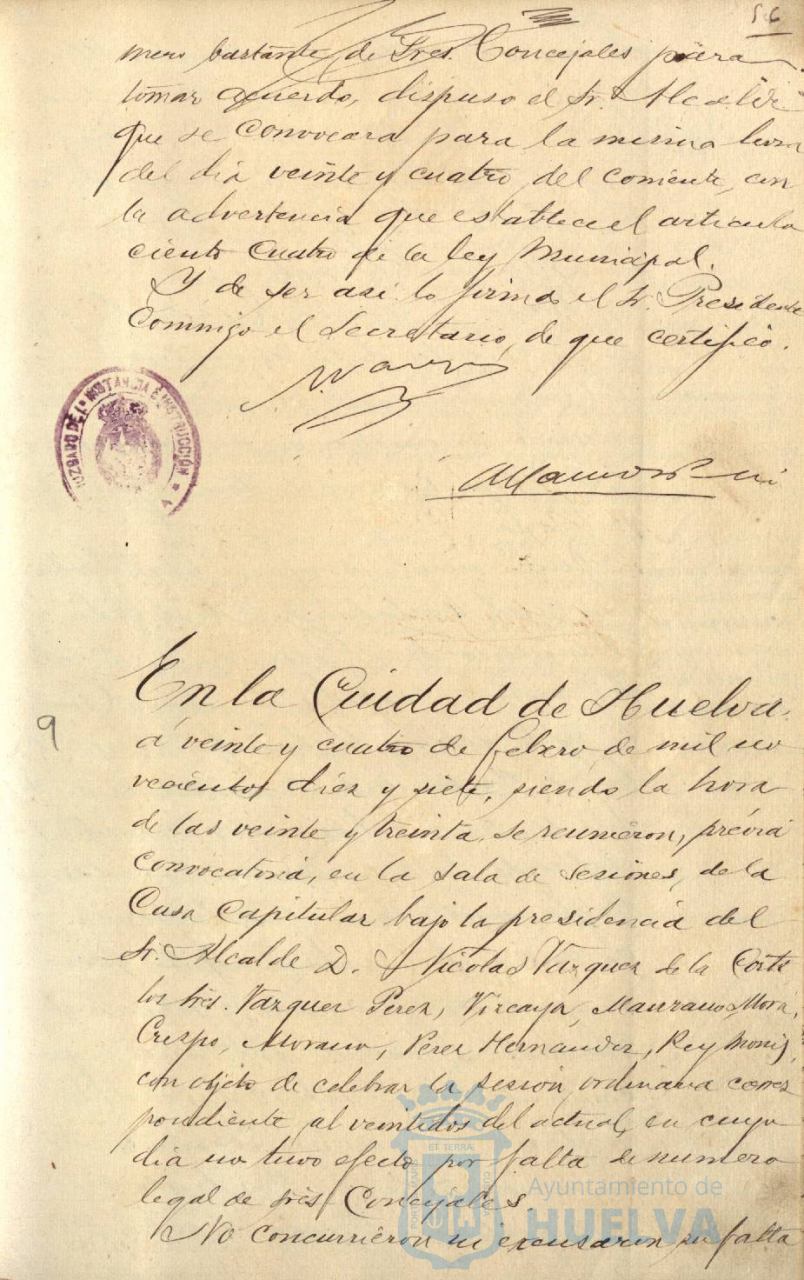 56
mero bastante de Sres. Concejales para
tomar acuerdo, dispuso el Sr. Alcalde
que se convocara para la misma hora
del dia veinte y cuatro del corriente, con
la advertencia que establece el articulo
ciento cuatro de la ley Municipal.
Y de ser asi lo firma el Sr. Presidente
Conmigo el Secretario, de que certifico.
JUZGADO DE 1ª INSTANCIA E INSTRUCCIÓN
9
En la Ciudad de Huelva,
á veinte y cuatro de febrero de mil no
vecientos diez y siete, siendo la hora
de las veinte y treinta, se reunieron, prévia
convocatoria, en la sala de sesiones, de la
Casa Capitular bajo la presidencia del
Sr. Alcalde D. Nicolas Vazquez de la Corte
los Sres. Vazquez Perez, Vizcaya, Manzano, Mora,
Crespo, Morano, Perez Hernandez, Rey Moniz,
con objeto de celebrar la sesion ordinaria corres
pondiente al veintidos del actual, en cuyo
dia no tuvo efecto por falta de numero
legal de Sres. Concejales.
No concurrieron ni excusaron su falta
ET TERRÆ
Ayuntamiento de
HUELVA